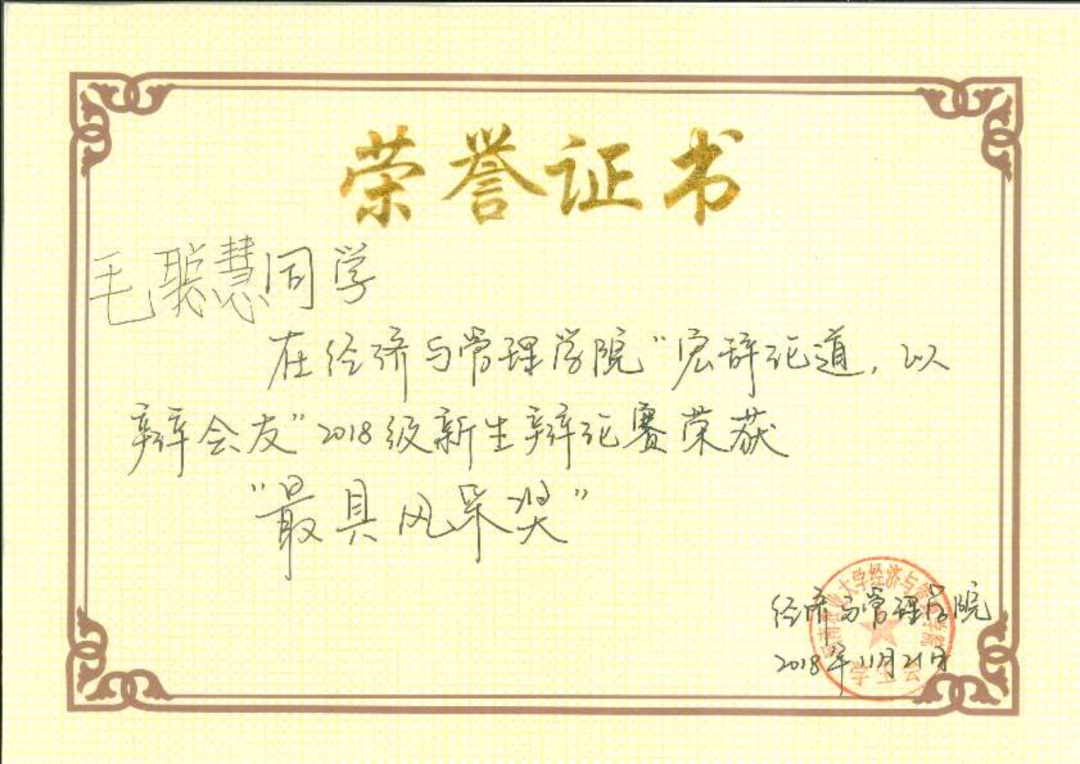 荣誉证书
毛聪慧同学
在经济与管理学院“宏辞论道，以
辩会友”2018级新生辩论赛荣获
“最具风采奖”
经济与管理学院
2018年11月21日